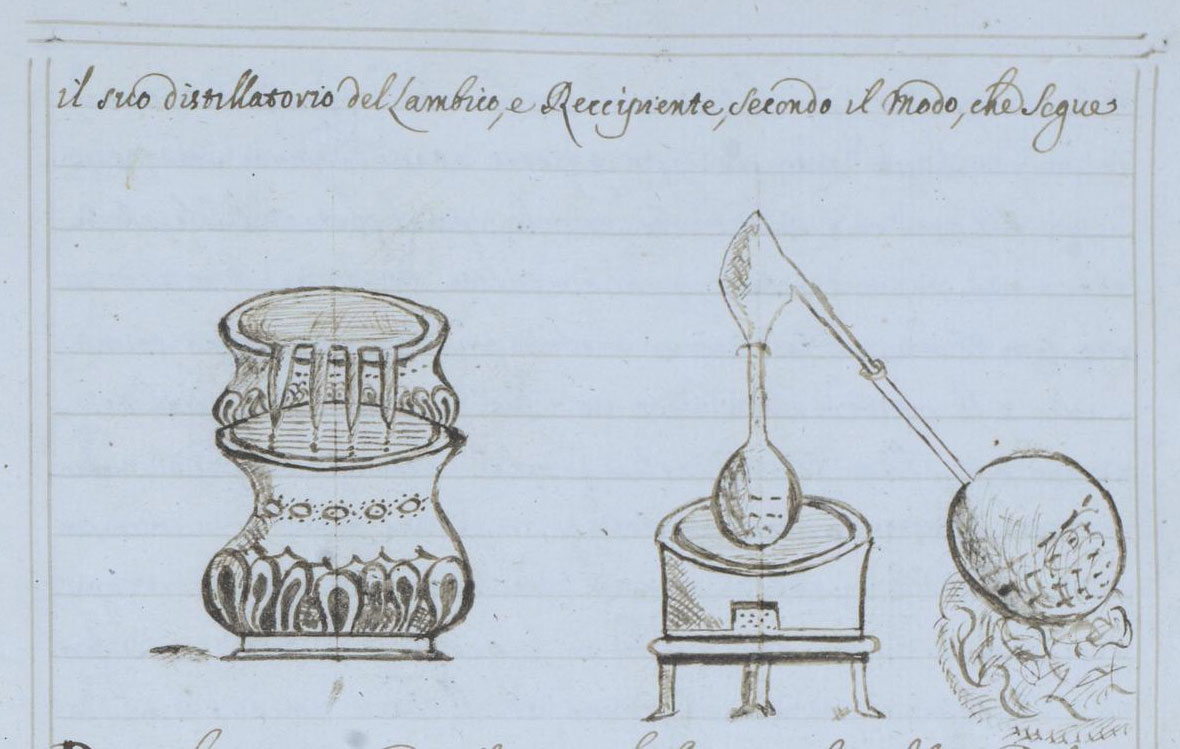 il suo distillatorio del Lambico, e Reccipiente, secondo il Modo, che Segue